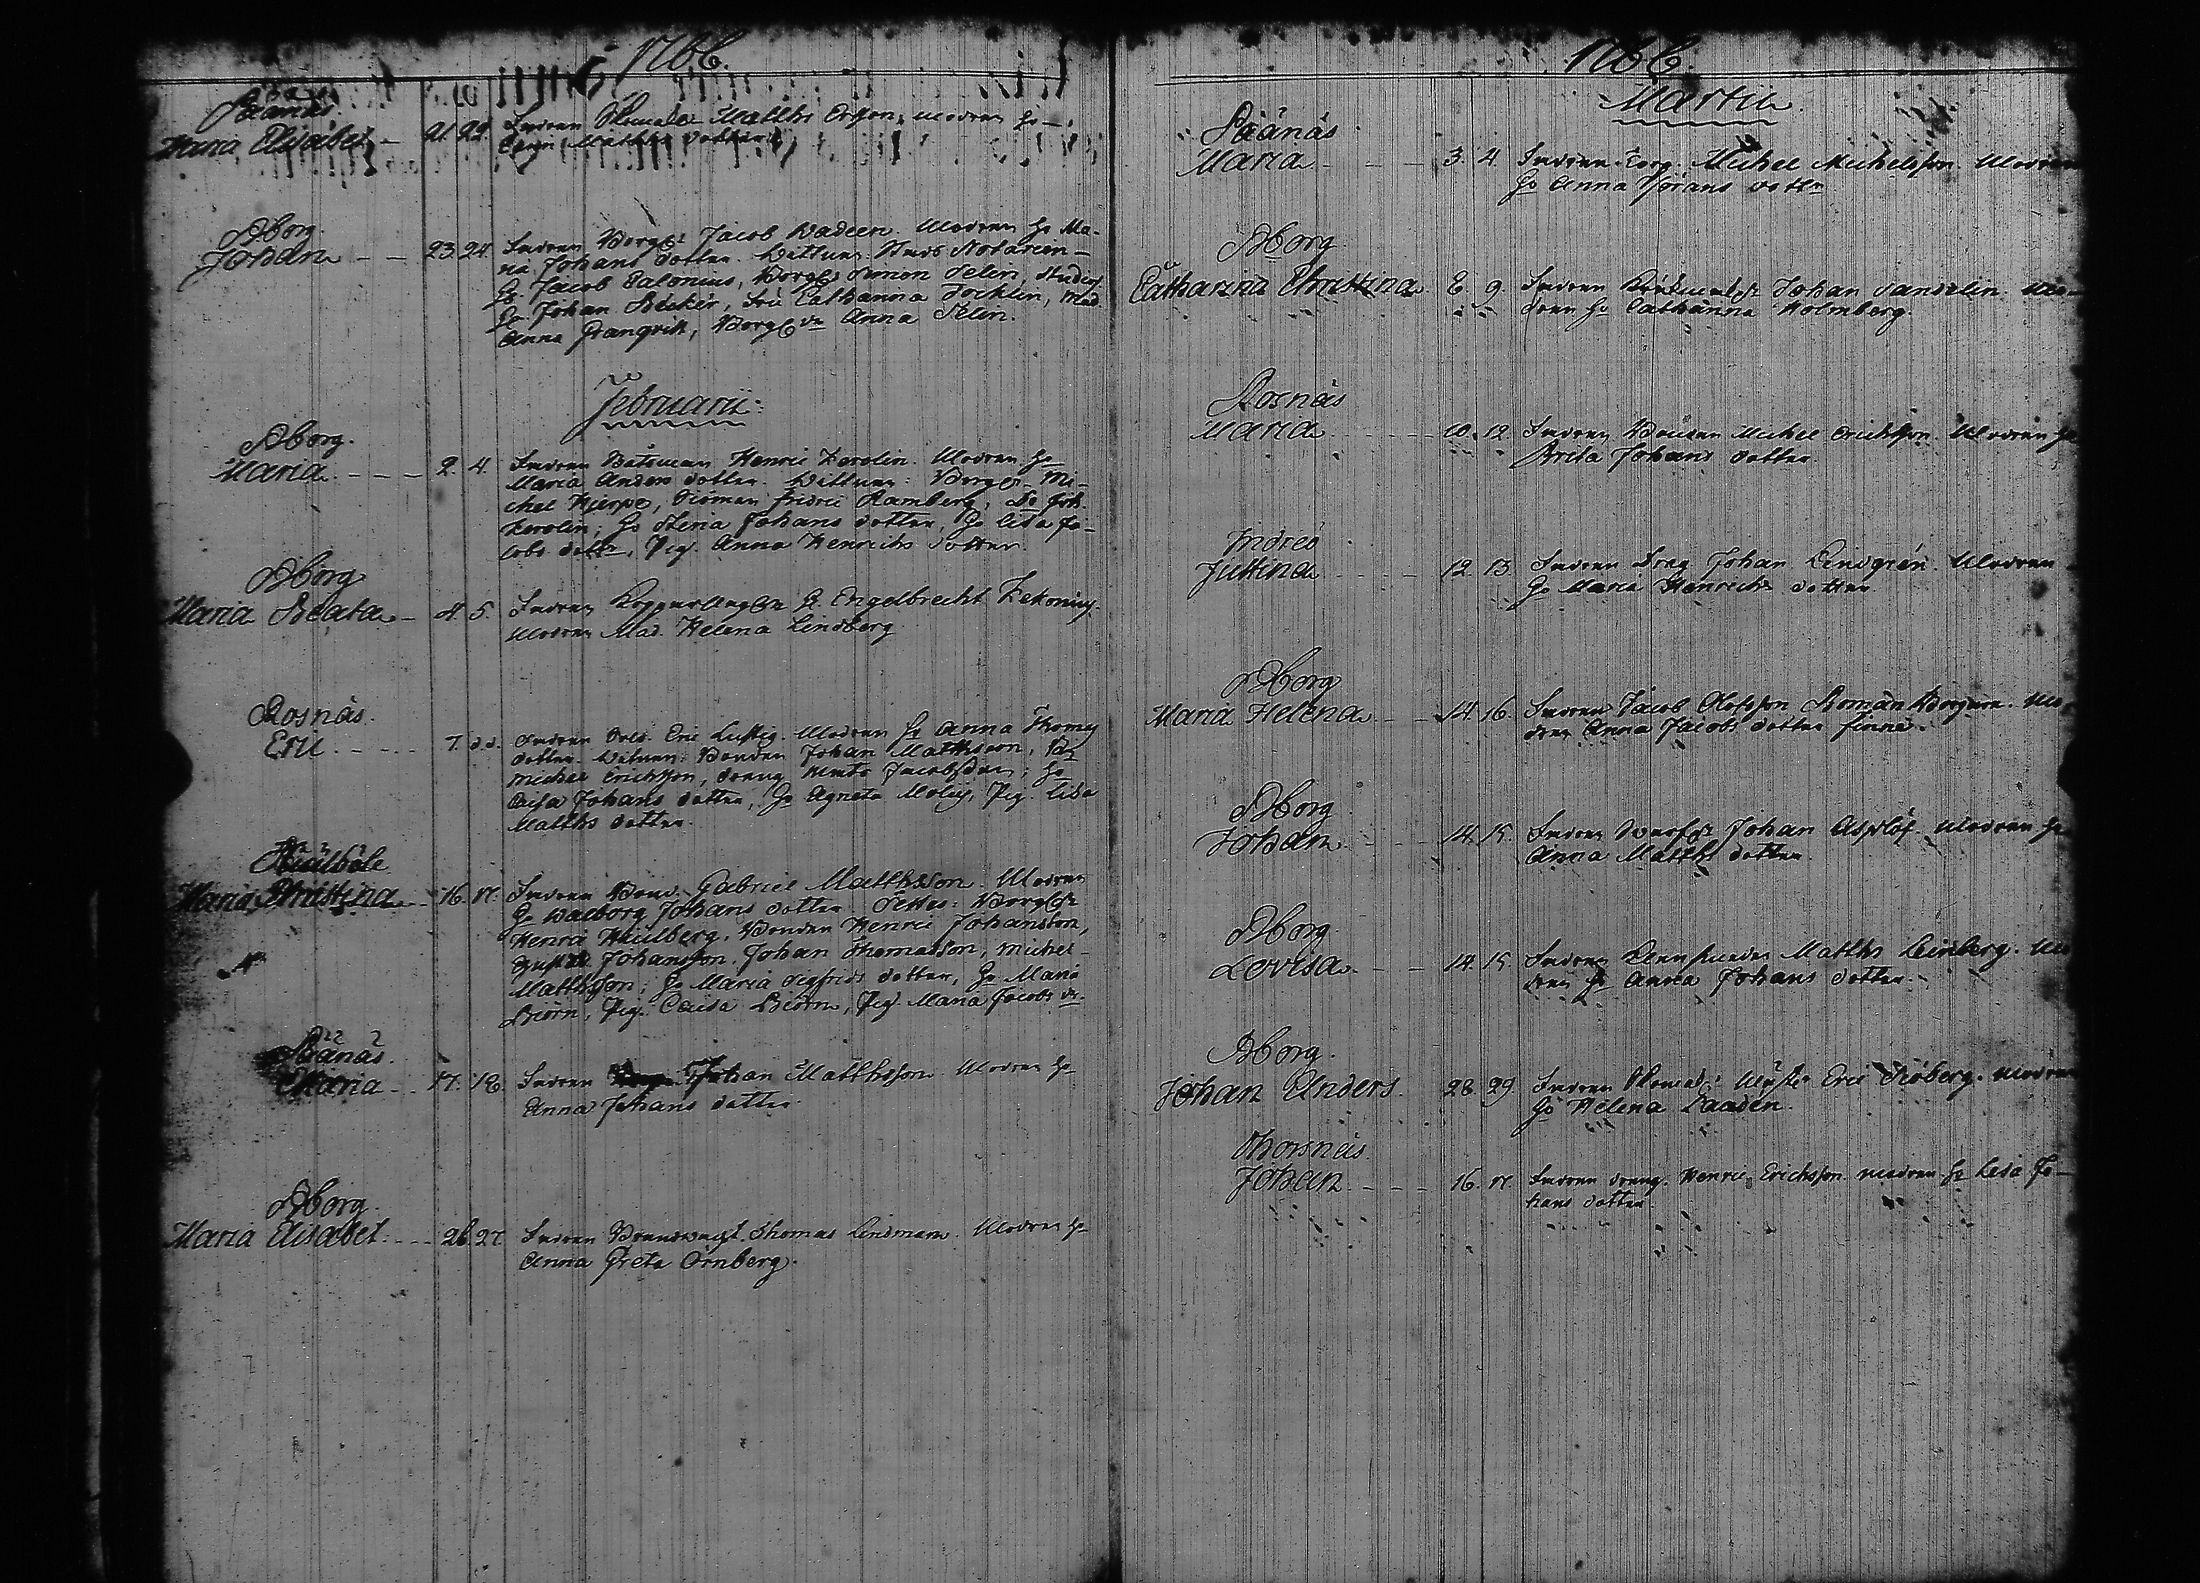 1766.
Maria Elisabet - 21. 22. Fadren Matths Ersson, modren Ho
Matths dotter
Bborg.
Johan - - 23. 24. Fadren Borg. Jacob Wadeen. Modren Ho Ma-
ria Johans dotter. Wittnen Notarien
Hr Jacob Calonius, Borg. Simon Selin, Stud.
Hr Johan Becker, Catharina Forklin, Mad.
Anna Granqvist, Borg. Anna Selin.
Februarii
Bborg.
Maria. - - - 2. 4. Fadren Båtsman Henric Zerolin. Modren Ho
Maria Anders dotter. Wittnen: Borg. Mi-
chel Hierpe, Siöman Fridric Ramberg, Do Joh.
Zerolin; Ho Stina Johans dotter, Ho Lisa Ja-
cobs dottr, Pig. Anna Henrichs dotter.
Bborg
Maria Beata - 4. 5. Fadren Hr Engelbrecht Zekonius.
Modren Mad. Helena Lindberg
Rosnäs.
Eric. - - - 7. d.d. Fadren Eric Lustig. Modren Ho Anna Thomas
dotter. Witnen: Bonden Johan Mattsson, Bd
Michel Erichsson, Dreng Matts Jacobsson; Ho
Caisa Johans dotter, Ho Agneta Pig. Lisa
Matths dotter.
Maria Christina - 16. 17. Fadren Bond. Gabriel Matthsson. Modren
Ho Walborg Johans dotter. Testes: Borg.
Henric Bonden Henric Johansson,
Gustav Johansson, Johan Thomasson, Michel
Matthsson; Ho Maria Sigfrids dotter, Ho Maria
Biörn, Pig. Caisa Biörn, Pig. Maria Jacobs dr.
Stänäs.
Maria - 17. 18. Fadren Johan Matthsson. Modren Ho
Anna Johans dotter.
Bborg.
Maria Elisabet. - - 26. 27. Fadren Thomas Lindman. Modren Ho
Anna Greta Örnberg.
1766.
Martii.
Stänäs
Maria. - - - 3. 4. Fadren Michel Michelsson Modren
Ho Anna Jörans dotter
Bborg
Catharina Christina. 8. 9. Fadren Johan Sandelin. Mo-
dren Ho Catharina Holmberg.
Rosnäs
Maria. - - - 10. 12. Fadren Bonden Michel Erichsson. Modren Ho
Brita Johans dotter.
Justina - - - 12. 13. Fadren Dreg Johan Lindgrén. Modren
Ho Maria Henrichs dotter.
Bborg
Maria Helena - - 14. 16. Fadren Jacob Olofsson Roman Borgare. Mo-
dren Anna Jacobs dotter finne.
Bborg
Johan - - - 14. 15. Fadren Johan Asplöf. Modren Ho
Anna Matths dotter.
Bborg.
Lovisa - - - 14. 15. Fadren Matths Leinberg. Mo
dren Ho Anna Johans dotter.
Bborg.
Johan Anders. 28. 29. Fadren Mäster Eric Siöberg. Modren
Ho Helena
Thorsnäs
Johan - - - 16. 17. Fadren Dreng. Henric Erichsson. modren Ho Lisa Jo-
hans dotter.